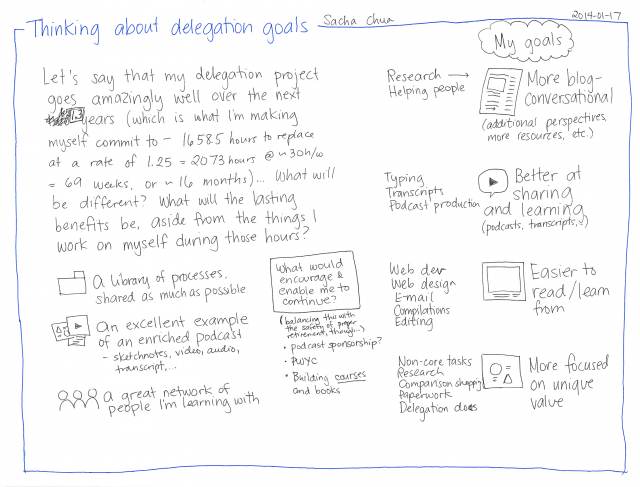 Thinking about delegation goals
Sacha Chua
2014-01-17
Let's say that my delegation project
goes amazingly well over the next
years (which is what I'm making
myself commit to - 1658.5 hours to replace
at a rate of 1.25 = 2073 hours @ ~30h/w
= 69 weeks, or ~16 months)... What will
be different? What will the lasting
benefits be, aside from the things I
work on myself during those hours?
a library of processes,
shared as much as possible
An excellent example
of an enriched podcast
- sketchnotes, video, audio,
transcript,...
a great network of
people I'm learning with
What would
encourage &
enable me to
continue?
(balancing this with
the safety of proper
retirement, though...)
• podcast sponsorship?
• PWYC
• Building courses
and books
My goals
Research →
Helping people
More blog-
conversational
(additional perspectives,
more resources, etc.)
Typing
Transcripts
Podcast production
Better at
sharing
and learning
(podcasts, transcripts,
Web dev
Web design
E-mail
Compilations
Editing
Easier to
read/learn
from
Non-core tasks
Research
Comparison shopping
Paperwork
Delegation docs
More focused
on unique
value